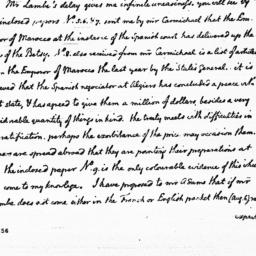 Mr Lamb's delay gives me infinite uneasiness. you will see by
inclosed papers No. 5. 6. 7. sent me by mr Carmichael that the Em-
or of Marocco at the instance of the Spanish court has delivered up the
of the Betsy. No. 8. also received from mr Carmichael is a list of articles
the Emperor of Marocco the last year by the States General. it is
ved that the Spanish negociator at Algiers has concluded a peace with
t state, & has agreed to give them a million of dollars, besides a very
iderable quantity of things in kind. the treaty meets with difficulties in
ratification. perhaps the exorbitance of the price may occasion them.
ers are spread abroad that they are pointing their preparations at
the inclosed paper No. 9. is the only colourable evidence of this which
come to my knowlege. I have proposed to mr Adams that if mr
mbe does not come either in the French or English packet then (Aug.)
56